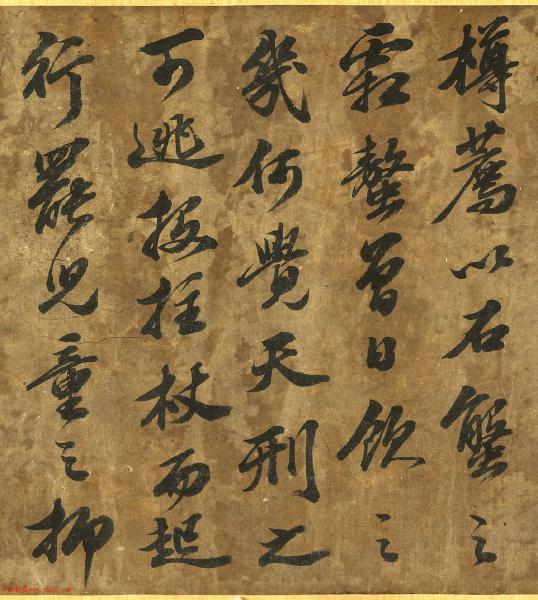 樽薦以石蟹之
霜螯曾日飲之
幾何覺天刑之
可逃投拄杖而起
行罷兒童之抑